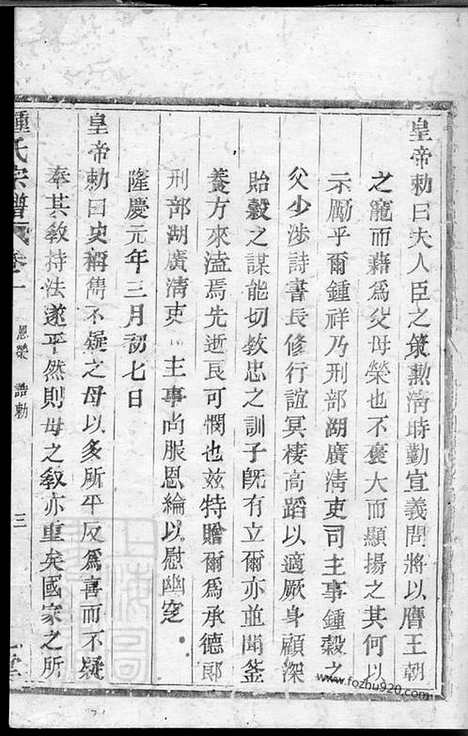 皇帝勅曰夫人臣之策勲淸時勤宣義問將以膺王朝
之寵而藉爲父母榮也不褒大而顯揚之其何以
示勵乎爾鍾祥乃刑部湖廣淸吏司主事鍾穀之
父少涉詩書長修行誼冥棲高蹈以適厥身顧深
貽穀之謀能切教忠之訓子旣有立爾亦並聞釜
養方來溘焉先逝良可憫也兹特贈爾爲承德郎
刑部湖廣淸吏 主事尚服恩綸以慰幽窀
隆慶元年三月初七日
皇帝勅曰史稱雋不疑之母以多所平反爲喜而不疑
奉其敎持法遂平然則母之敎亦重矣國家之所
鍾氏宗譜 卷一 恩榮 誥勅 三 堂
上海
www.fozhu920.com